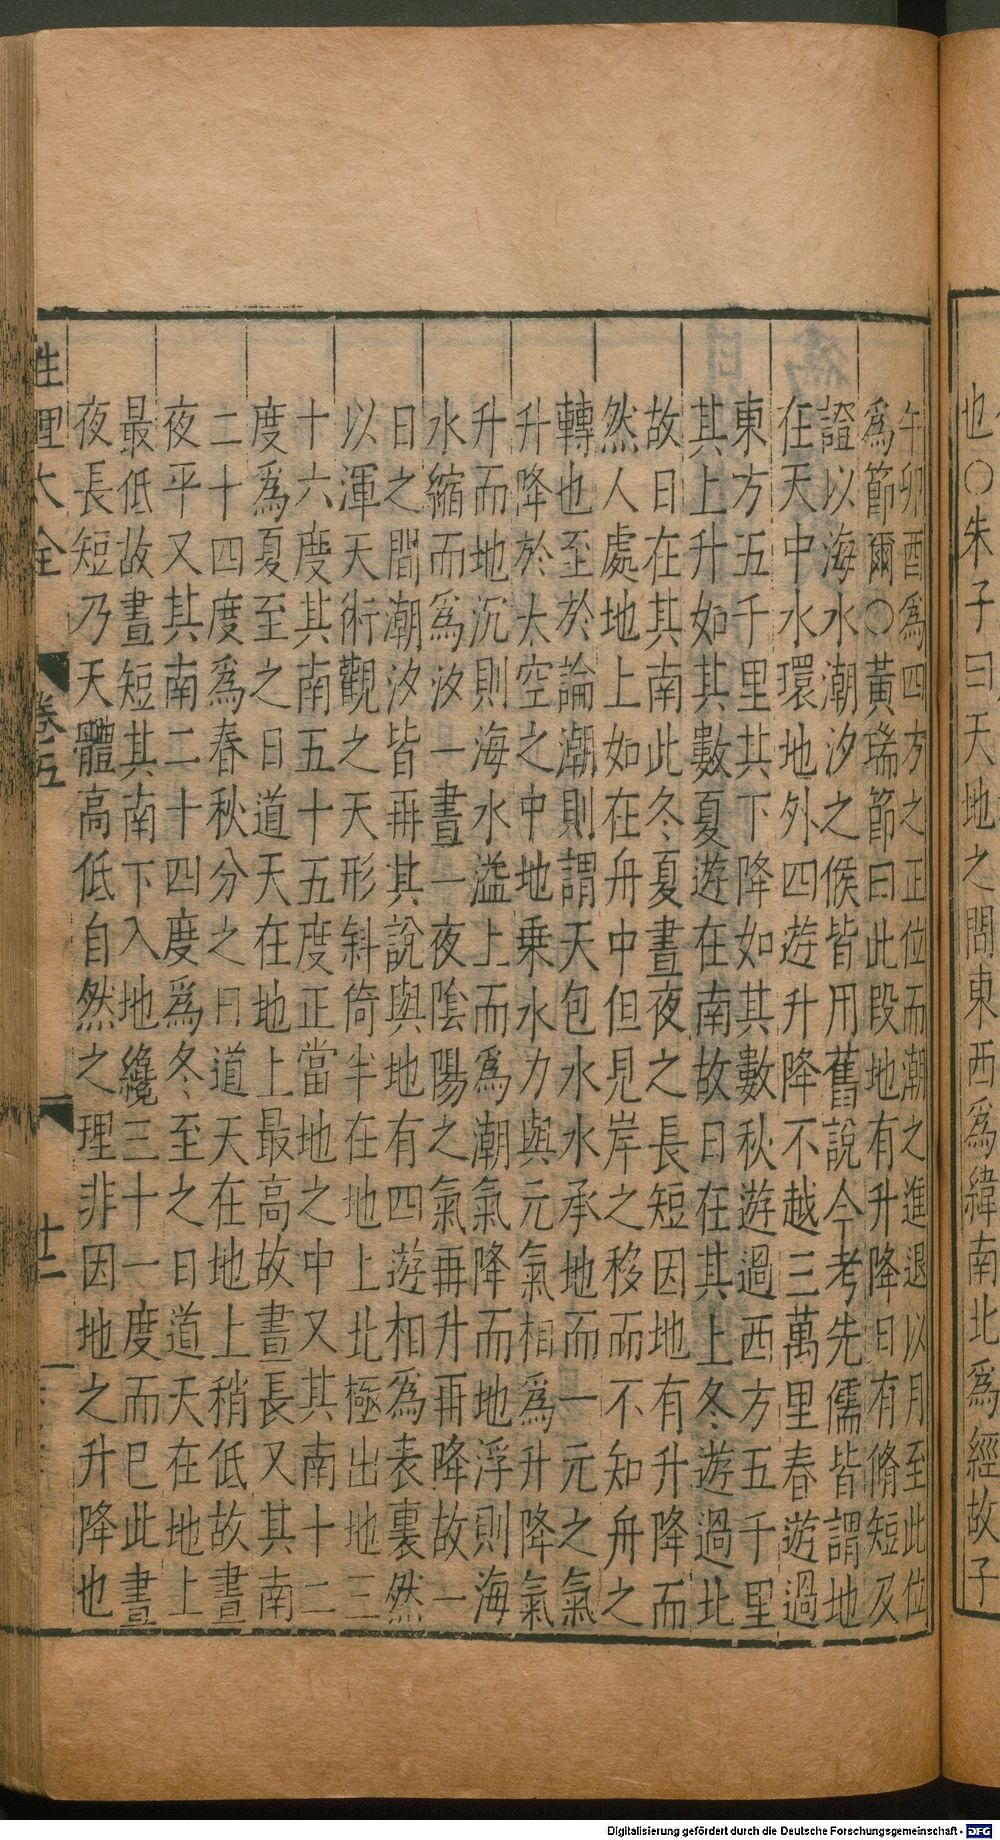 也○朱子曰天地之間東西爲緯南北爲經故子
午卯酉爲四方之正位而潮之進退以月至此位
爲節爾○黃瑞節曰此段地有升降日有脩短及
證以海水潮汐之候皆用舊說今考先儒皆謂地
在天中水環地外四遊升降不越三萬里春遊過
東方五千里其下降如其數秋遊過西方五千里
其上升如其數夏遊在南故日在其上冬遊過北
故日在其南此冬夏晝夜之長短因地有升降而
然人處地上如在舟中但見岸之移而不知舟之
轉也至於論潮則謂天包水水承地而一元之氣
升降於太空之中地乗水力與元氣相爲升降氣
升而地沉則海水溢上而爲潮氣降而地浮則海
水縮而爲汐一晝一夜陰陽之氣再升再降故一
日之間潮汐皆再其說與地有四遊相爲表裏然
以渾天術觀之天形斜倚半在地上北極出地三
十六度其南五十五度正當地之中又其南十二
度爲夏至之日道天在地上最高故晝長又其南
二十四度爲春秋分之日道天在地上稍低故晝
夜平又其南二十四度爲冬至之日道天在地上
最低故晝短其南下入地纔三十一度而已此晝
夜長短乃天體高低自然之理非因地之升降也
性理大全 卷五 廿二
Digitalisierung gefördert durch die Deutsche Forschungsgemeinschaft - DFG